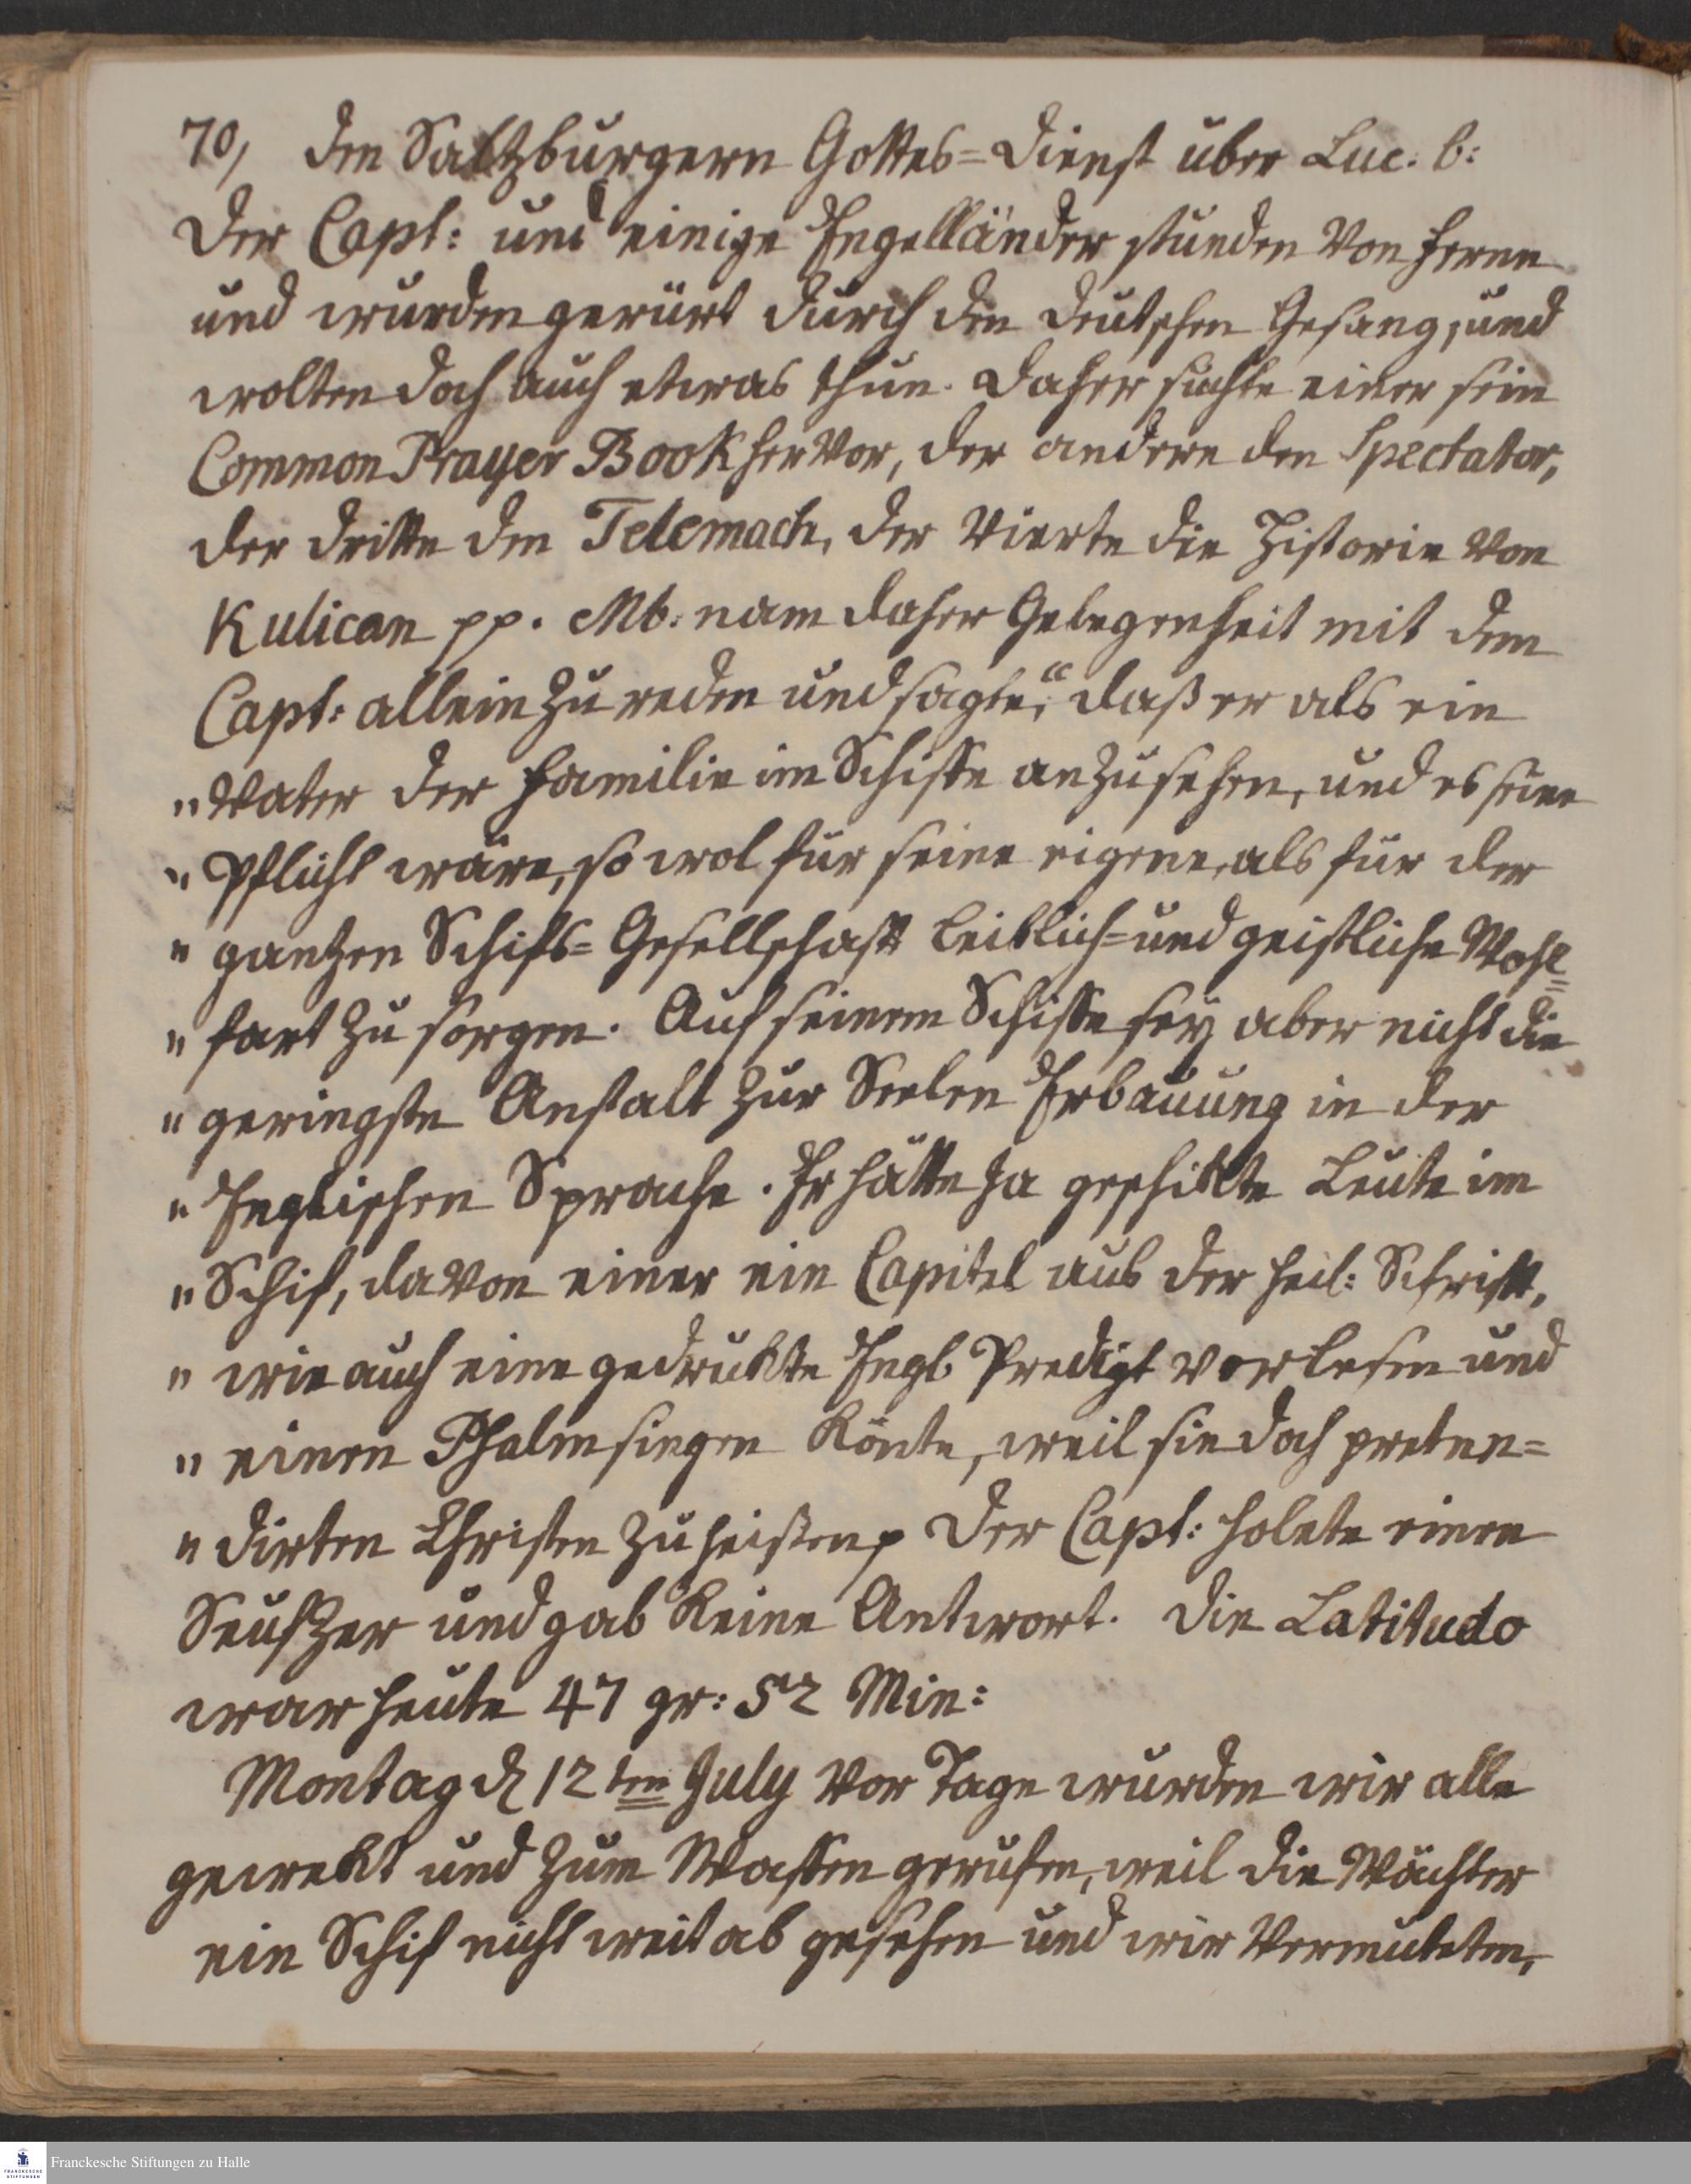 70, den Saltzburgern Gottes=Dienst über Luc. 6:
Der Capt: und einige Engelländer stunden von ferne
und wurden gerürt durch den deutschen Gesang, und
wolten doch auch etwas thun. Daher suchte einer sein
Common Prayer Book hervor, der andere den Spectator,
der dritte den Telemach, der vierte die Historie von
Kulican pp. Mb: nam daher Gelegenheit mit dem
Capt: allein zu reden und sagte, "daß er als ein
"Vater der Familie im Schiffe anzusehen, und es seine
"Pflicht wäre, so wol für seine eigene, als für der
"gantzen Schifs=Gesellschaft leiblich= und geistliche Wohl=
"fart zu sorgen. Auf seinem Schiffe sey aber nicht die
"geringste Anstalt zur Seelen Erbauung in der
"Englischen Sprache. Er hätte ja geschikte Leute im
"Schif, davon einer ein Capitel aus der heil: Schrift,
"wie auch eine gedrukte Engl. Predigt vorlesen und
"einen Psalm singen könte, weil sie doch preten=
"dirten Christen zu heißen p Der Capt: holete einen
Seufzer und gab keine Antwort. Die Latitudo
war heute 47 gr: 52 Min:
Montag d 12ten July vor Tage wurden wir alle
gewekt und zum Waffen gerufen, weil die Wächter
ein Schif nicht weit ab gesehen und wir vermuteten,
Franckesche Stiftungen zu Halle
FRANCKESCHE
STIFTUNGEN